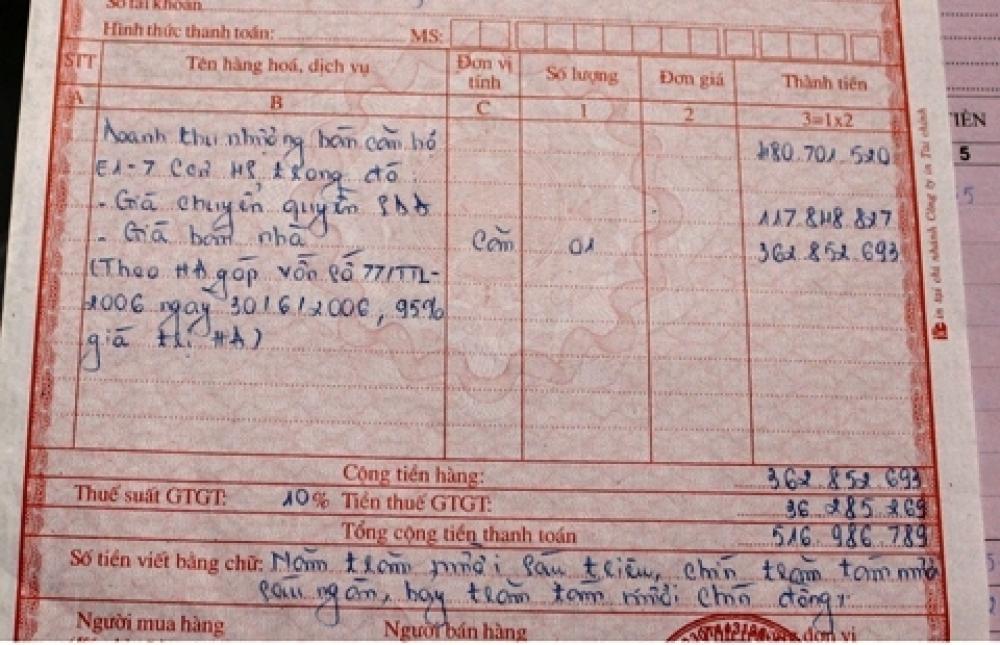 Số tài khoản
Hình thức thanh toán: MS:
STT Tên hàng hoá, dịch vụ Đơn vị tính Số lượng Đơn giá Thành tiền
A B C 1 2 3=1x2
Doanh thu nhượng bán căn hộ 480.701.520
E1-7 Cao ốc trong đó:
- Giá chuyển quyền SDĐ 117.848.827
- Giá bán nhà Căn 01 362.852.693
(Theo HĐ góp vốn số 77/TTL-
2006 ngày 30/6/2006, 95%
giá trị HĐ)
Cộng tiền hàng: 362.852.693
Thuế suất GTGT: 10% Tiền thuế GTGT: 36.285.269
Tổng cộng tiền thanh toán 516.986.789
Số tiền viết bằng chữ: Năm trăm mười sáu triệu, chín trăm tám mươi
sáu ngàn, bảy trăm tám mươi chín đồng
Người mua hàng Người bán hàng đơn vị
in tại chi nhánh Công ty in Tài chính
TIỀN
5